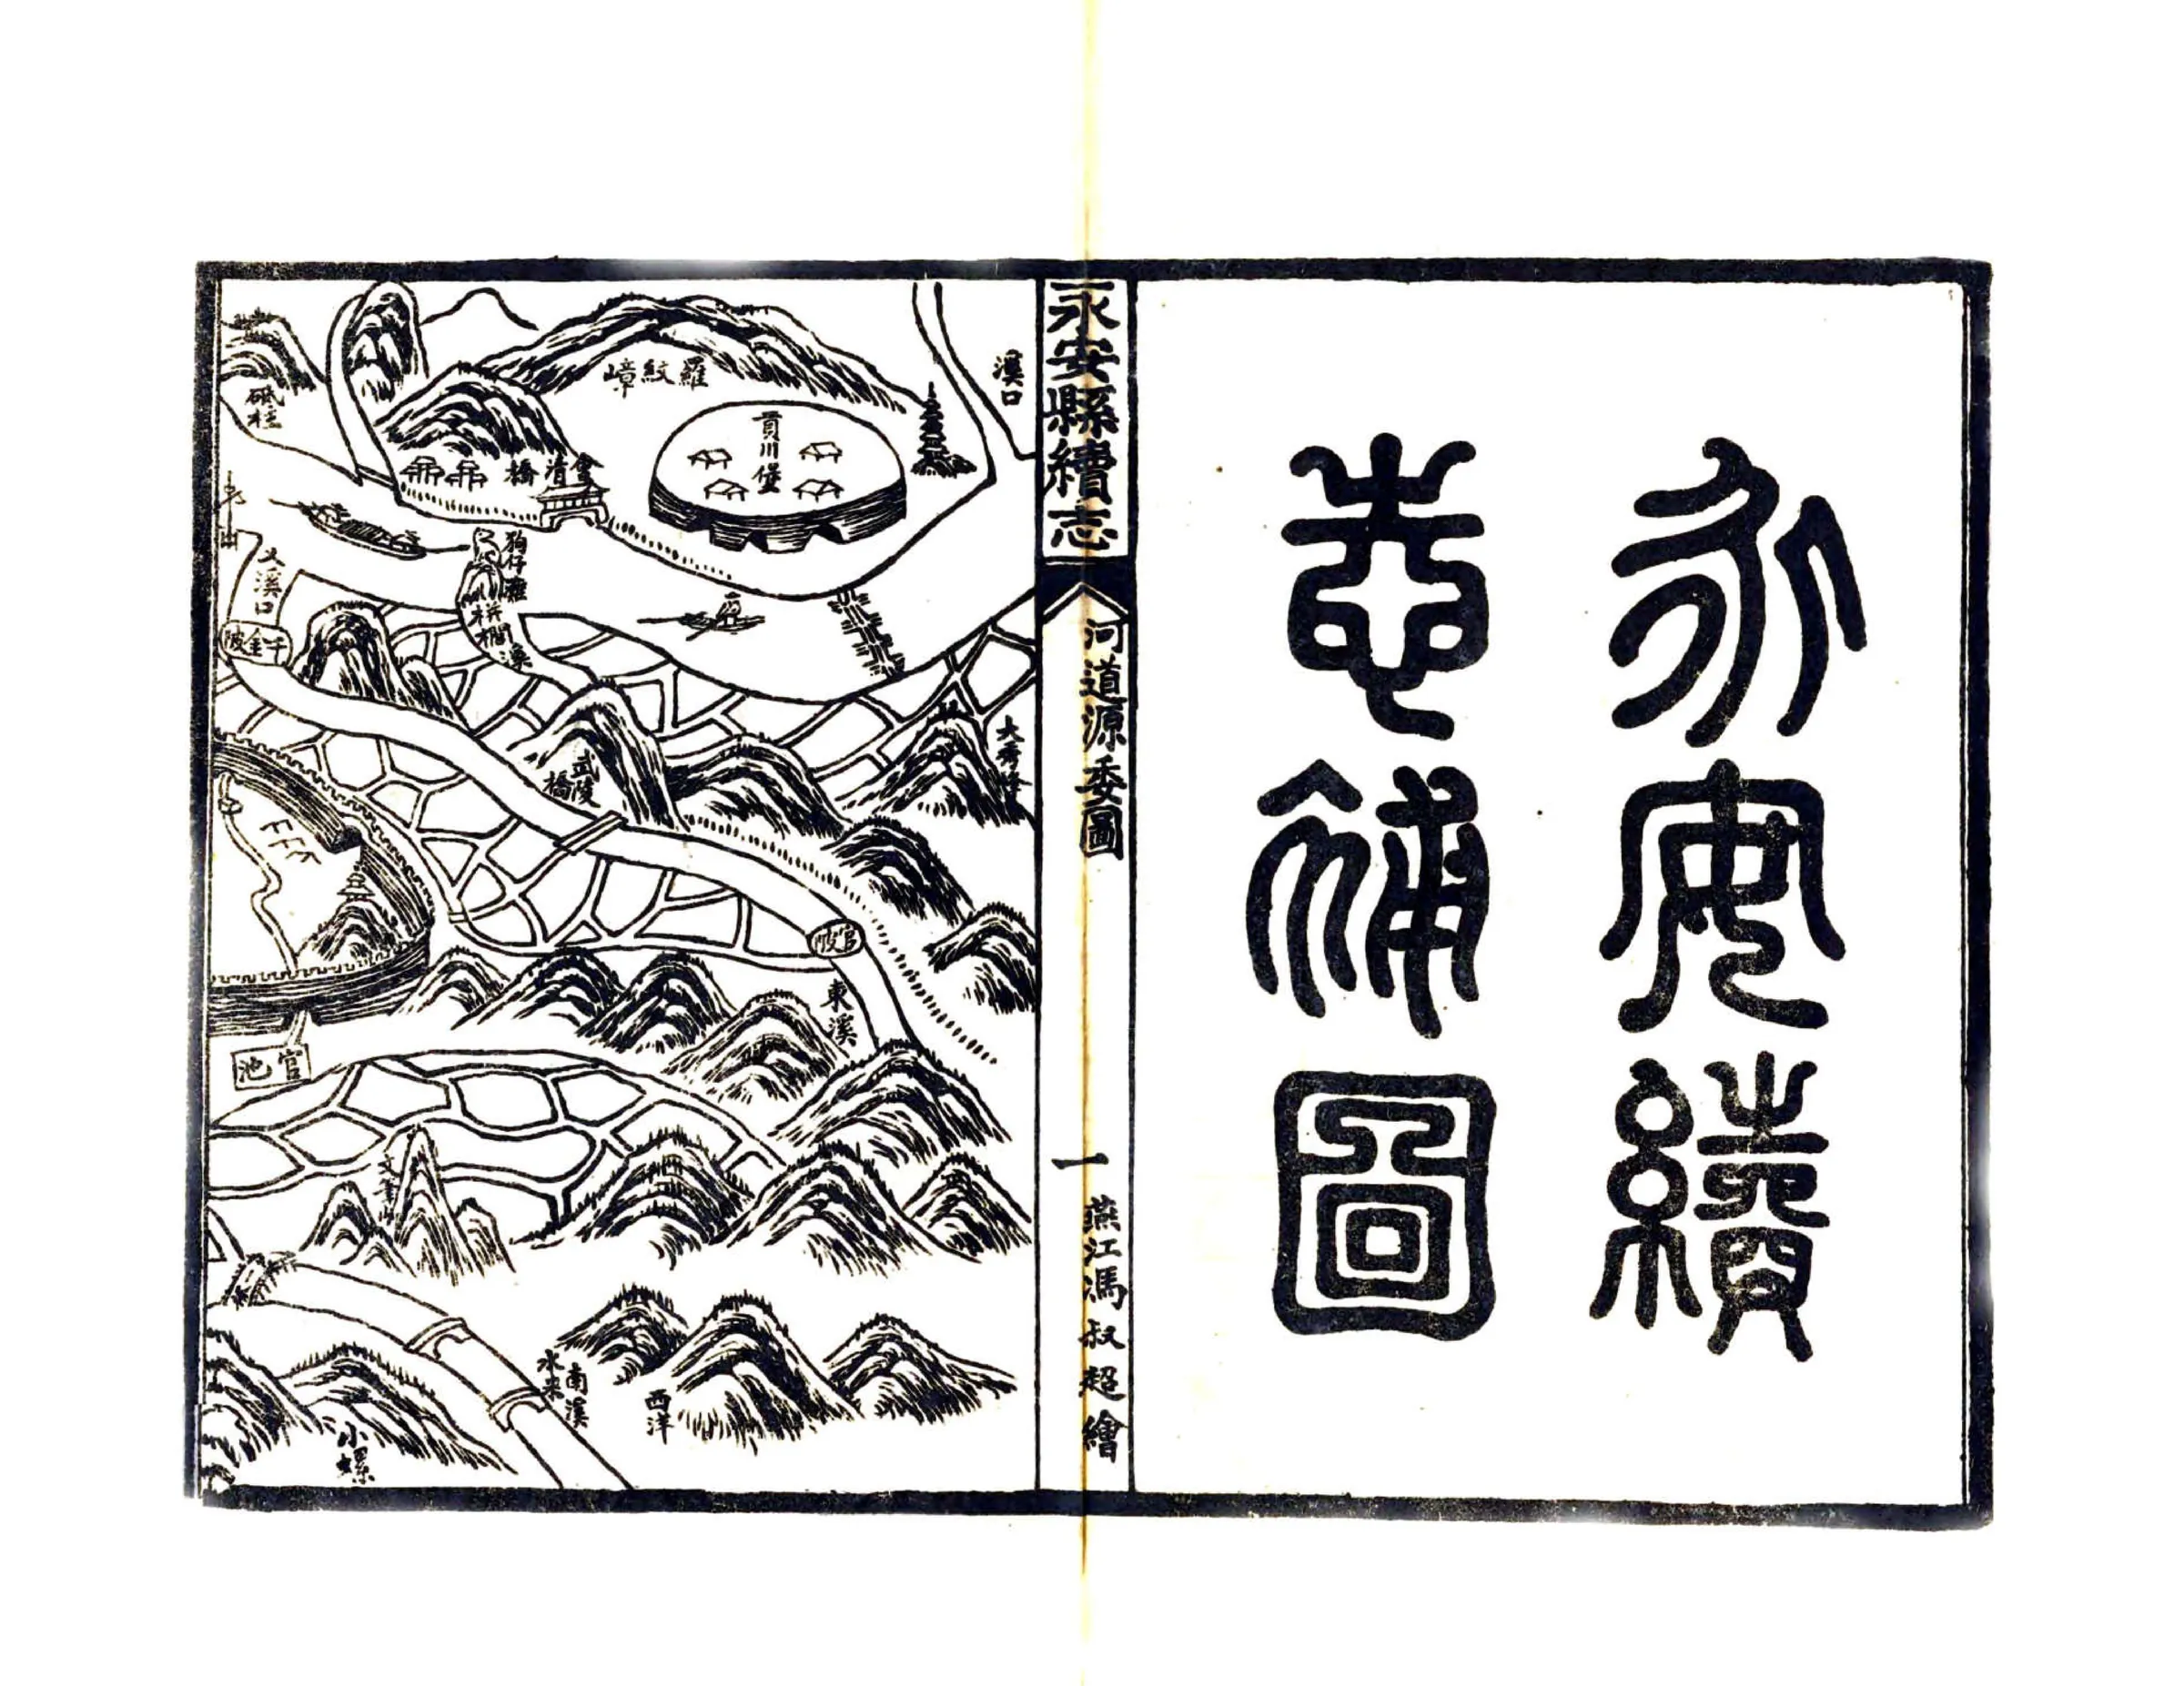 永安續
志補圖
永安縣續志
河道源委圖
一
燕江馮叔超繪
溪口
羅紋嶂
貢川堡
會清橋
砥柱
狗仔灘
栟櫚溪
文溪口
千金陂
大秀峰
武陵橋
官陂
東溪
官池
南溪水來
西洋
小螺